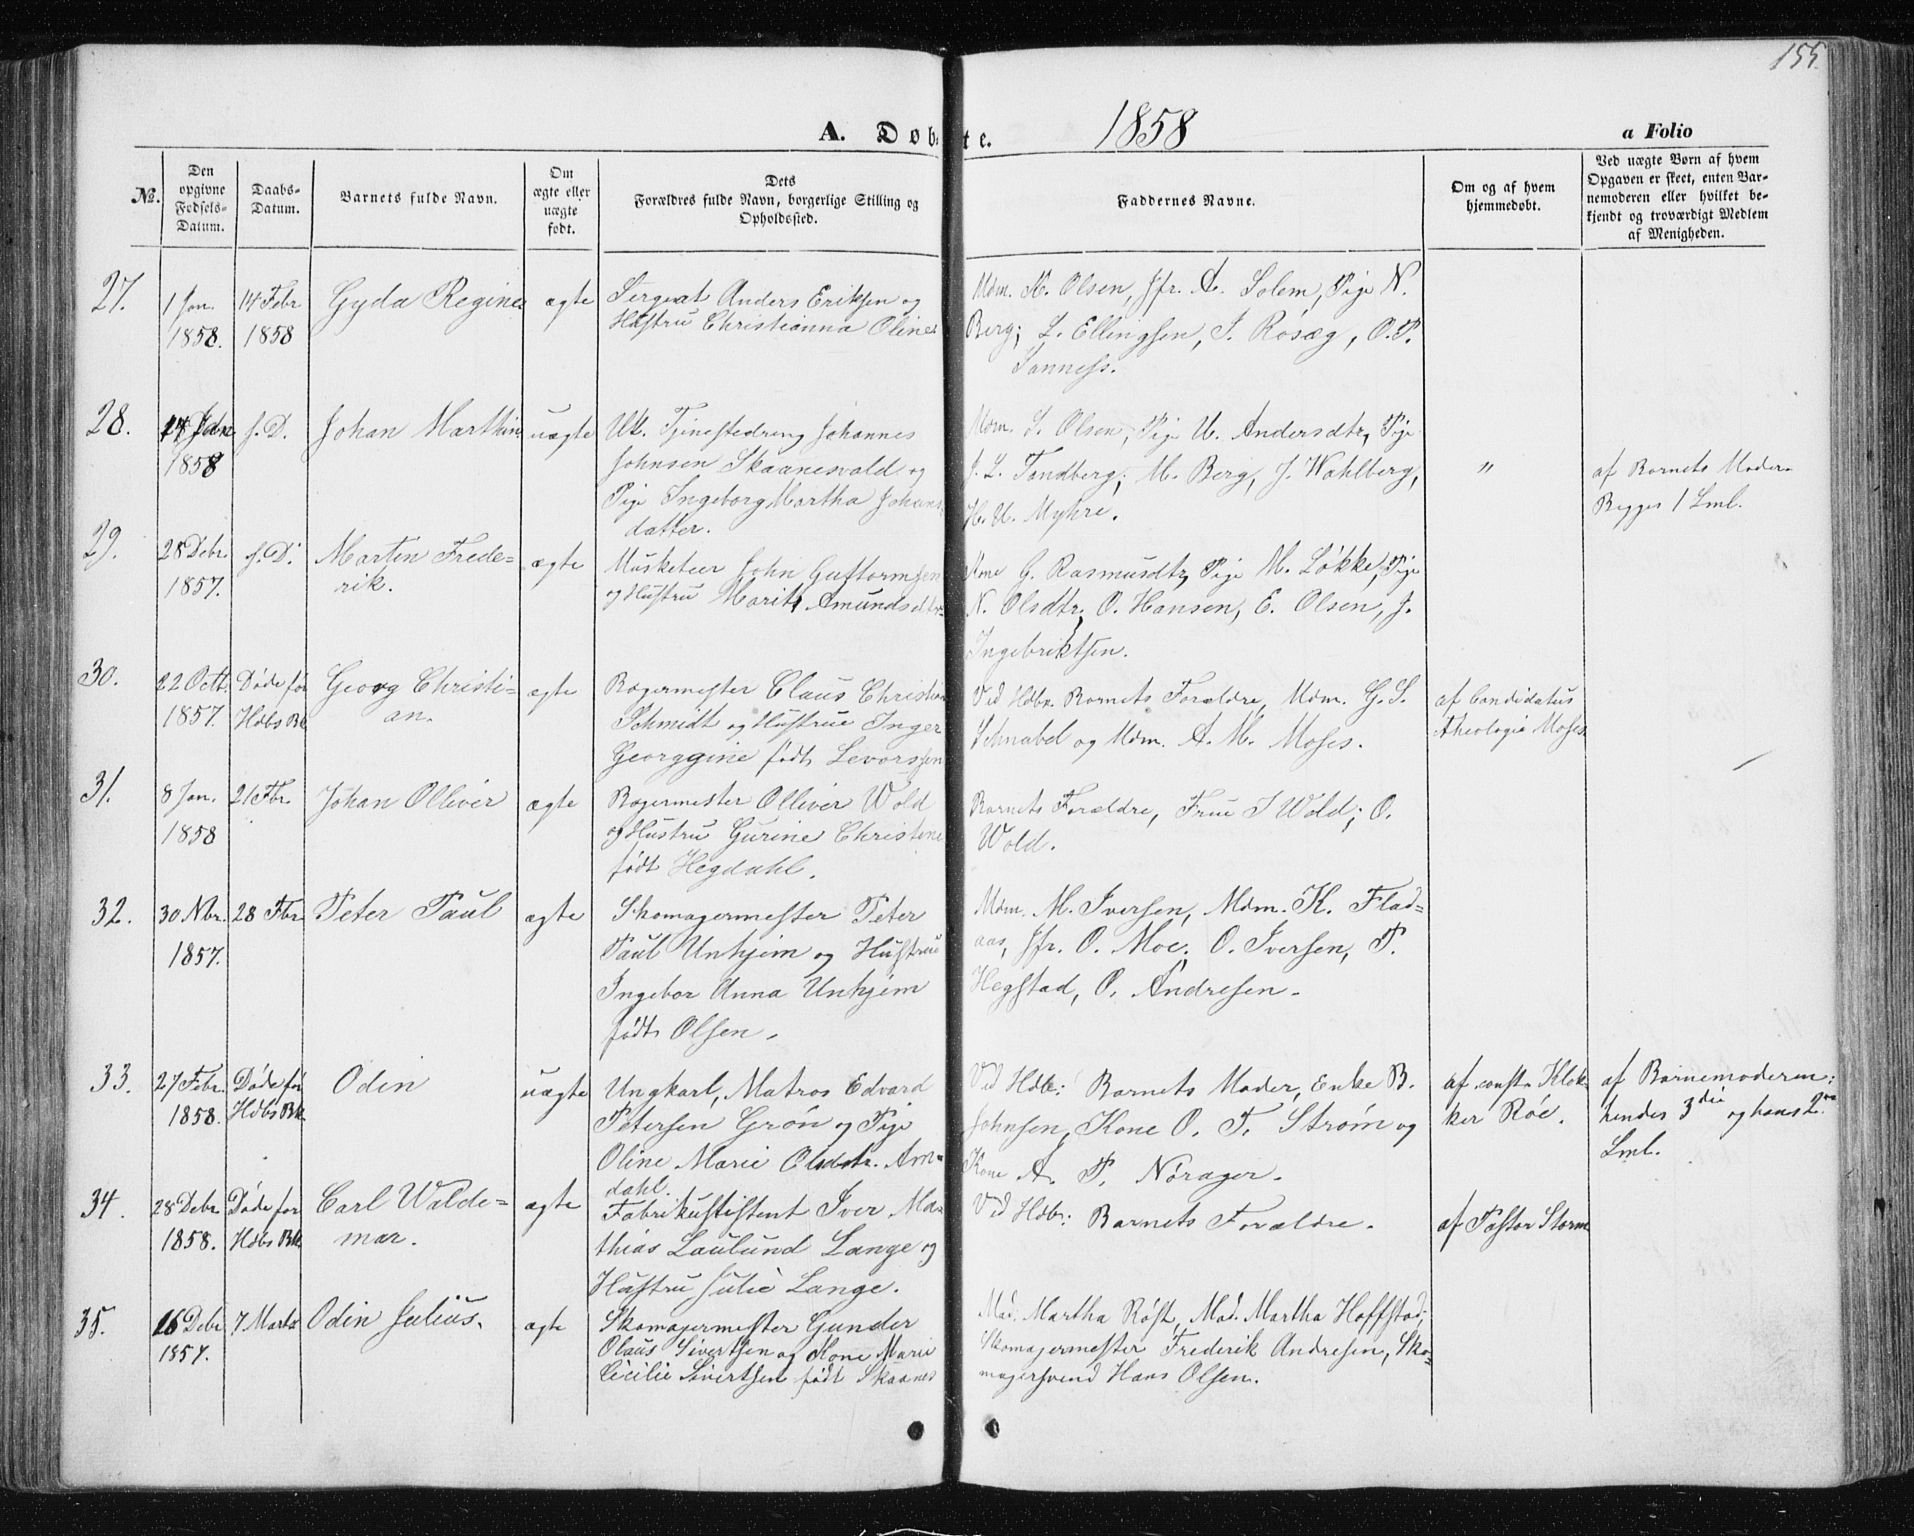 155.
A. Døbte. 1858 a Folio
No.
Den opgivne Fødsels-Datum.
Daabs-Datum.
Barnets fulde Navn.
Om ægte eller uægte født.
Dets
Forældres fulde Navn, borgerlige Stilling og
Opholdssted.
Faddernes Navne.
Om og af hvem
hjemmedøbt.
Ved uægte Børn af hvem
Opgaven er skeet, enten Bar-
nemoderen eller hvilket be-
kjendt og troværdigt Medlem
af Menigheden.
27. 1 Jan. 1858. 14 Febr 1858 Gyda Regine ægte
Sergeat Anders Eriksen og
Hustru Christianna Oline
Mdm. K. Olsen, Jfr. A. Solem, Pige N.
Berg; L. Ellingsen, J. Rosæg, O. P.
Sanness.
28. 14 Jan 1858 s. D. Johan Marthin uægte
Uk. Tjenestedreng Johannes
Johnsen Skaanesvald og
Pige Ingeborg Martha Johans
datter.
Mdm. S. Olsen, Pige U. Andersdtr, Pige
J. L. Tandberg; M. Berg, J. Wahlberg,
H. U. Myhre.
"
af Barnets Moder.
Begges 1 Lml.
29. 28 Debr. 1857. s. D. Martin Frede-
rik. ægte
Musketeer John Guttormsen
og Hustru Marit Amundsdtr.
Kone G. Rasmusdtr, Pige M. Løkke, Pige
N. Olsdtr; O. Hansen, E. Olsen, J.
Ingebriktsen.
30. 22 Octb. 1857. Døde før Hdbs Bk Georg Christi-
an. ægte
Bagermester Claus Christian
Schmidt og Hustrue Inger
Georggine født Levorssen
Ved Hdbn. Barnets Forældre, Mdm. G. S.
Schnabel og Mdm. A. M. Moses.
af Candidatus
Theologiæ Moses
31. 8 Jan. 1858 21 Fbr. Johan Olliver ægte
Bagermester Olliver Wold
og Hustru Gurine Christine
født Hegdahl.
Barnets Forældre, Frue J Wold; O.
Wold.
32. 30 Nbr. 1857. 28 Fbr. Peter Paul ægte
Skomagermester Peter
Paul Unhjem og Hustrue
Ingebor Anna Unhjem
født Olsen.
Mdm. M. Iversen, Mdm. K. Flad-
aas, Jfr. O. Moe; O. Iversen, P.
Hegstad, O. Andresen.
33. 27 Febr. 1858. Døde før Hdbs Bk Odin uægte
Ungkarl, Matros Edvard
Petersen Grøn og Pige
Oline Marie Olsdtr. Am-
dahl.
Ved Hdb: Barnets Moder, Enke B.
Johnsen, Kone O. T. Strøm og
Kone A. P. Nørager.
af const. Klok-
ker Röe.
af Barnemoderen:
hendes 3die og hans 2
Lml.
34. 28 Debr 1858. Døde før Hdbs Bk Carl Walde-
mar. ægte
Fabrikusistent Iver Ma-
thias Laulund Lange og
Hustru Julie Lange.
Ved Hdb: Barnets Forældre.
af Pastor Storm
35. 16 Debr 1857. 7 Marts Odin Julius. ægte
Skomagermester Gunder
Olaus Sivertsen og Kone Marie
Cicilie Sivertsen født Skaanes
Mad: Martha Røst, Mad. Martha Hoffstad;
Skomagermester Frederik Andresen, Sko-
magersvend Hans Olsen.